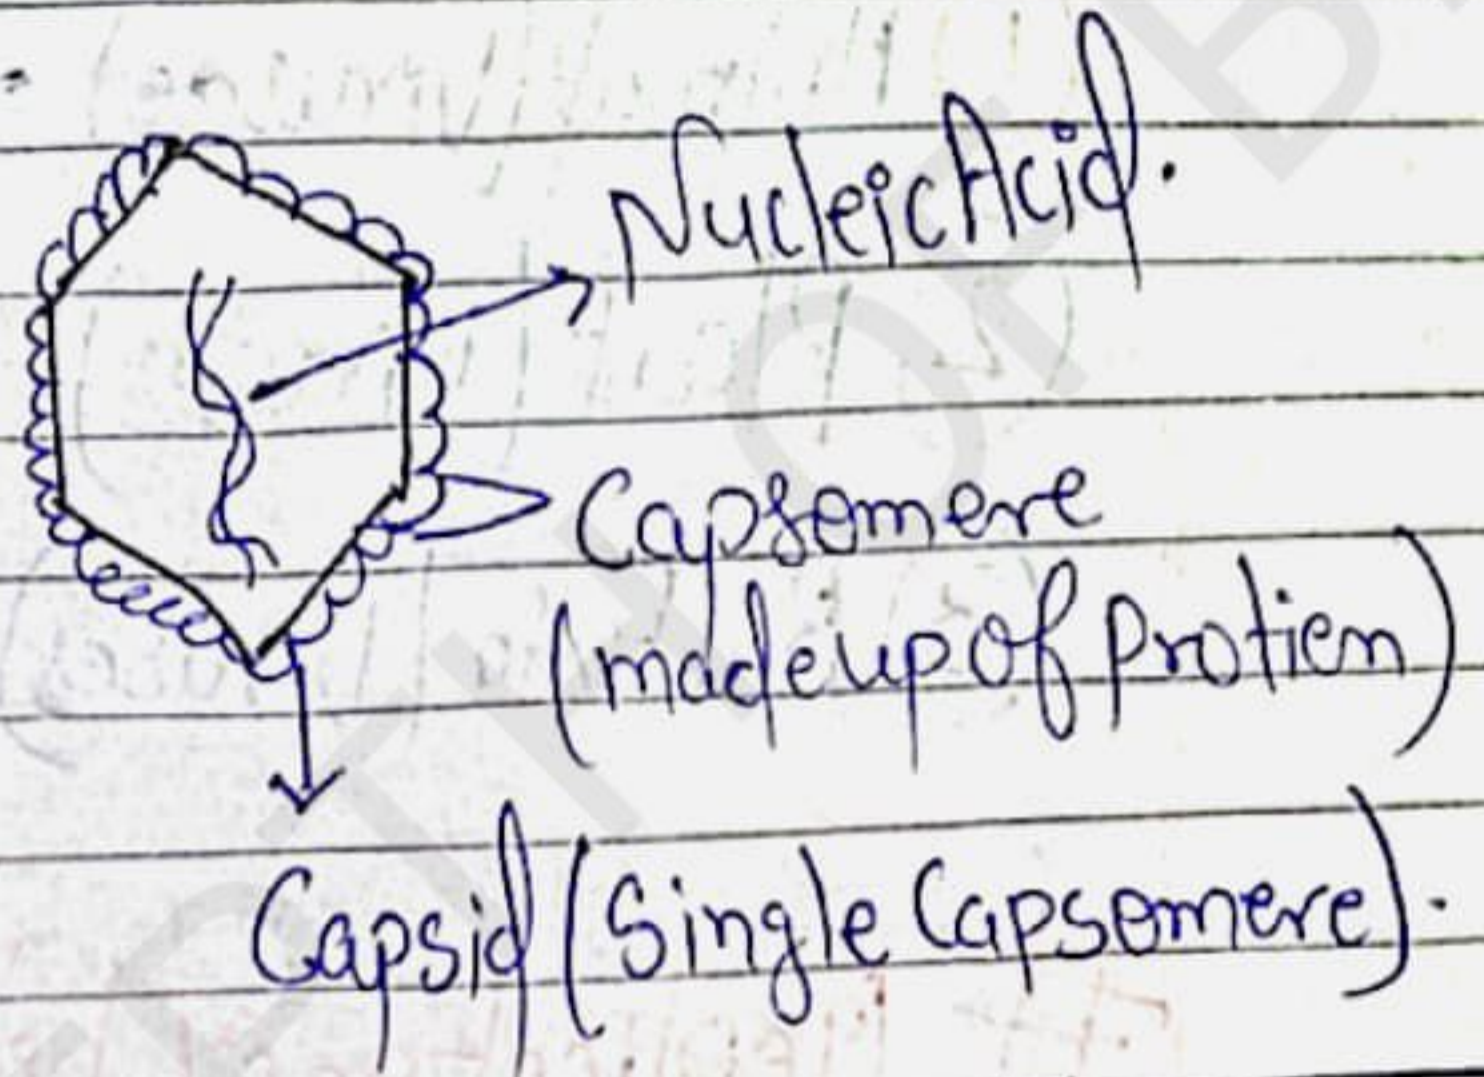 Nucleic Acid.
Capsomere
(made up of Protien)
Capsid (Single Capsomere).